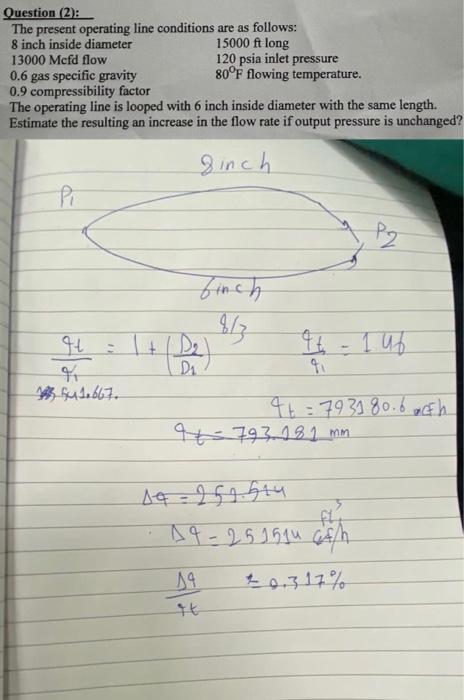 Question (2):
The present operating line conditions are as follows:
8 inch inside diameter 15000 ft long
13000 Mcfd flow 120 psia inlet pressure
0.6 gas specific gravity 80°F flowing temperature.
0.9 compressibility factor
The operating line is looped with 6 inch inside diameter with the same length.
Estimate the resulting an increase in the flow rate if output pressure is unchanged?
8 inch
P1
P2
6 inch
qt/q1 = 1 + (D2/D1)^8/3 qt/q1 = 1.46
541.667.
qt = 793180.6 cf/h
qt = 793.181 mm
Δq = 251.514
Δq = 251514 ft³/h
Δq/qt = 0.317%